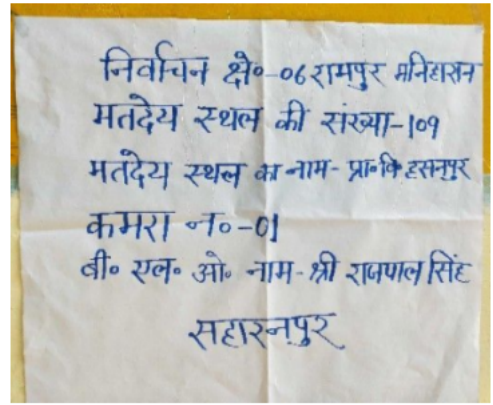 निर्वाचन क्षे०-06 रामपुर मनिहारान
मतदेय स्थल की संख्या-109
मतदेय स्थल का नाम- प्रा०वि हसनपुर
कमरा न०-01
बी० एल० ओ० नाम-श्री राजपाल सिंह
सहारनपुर